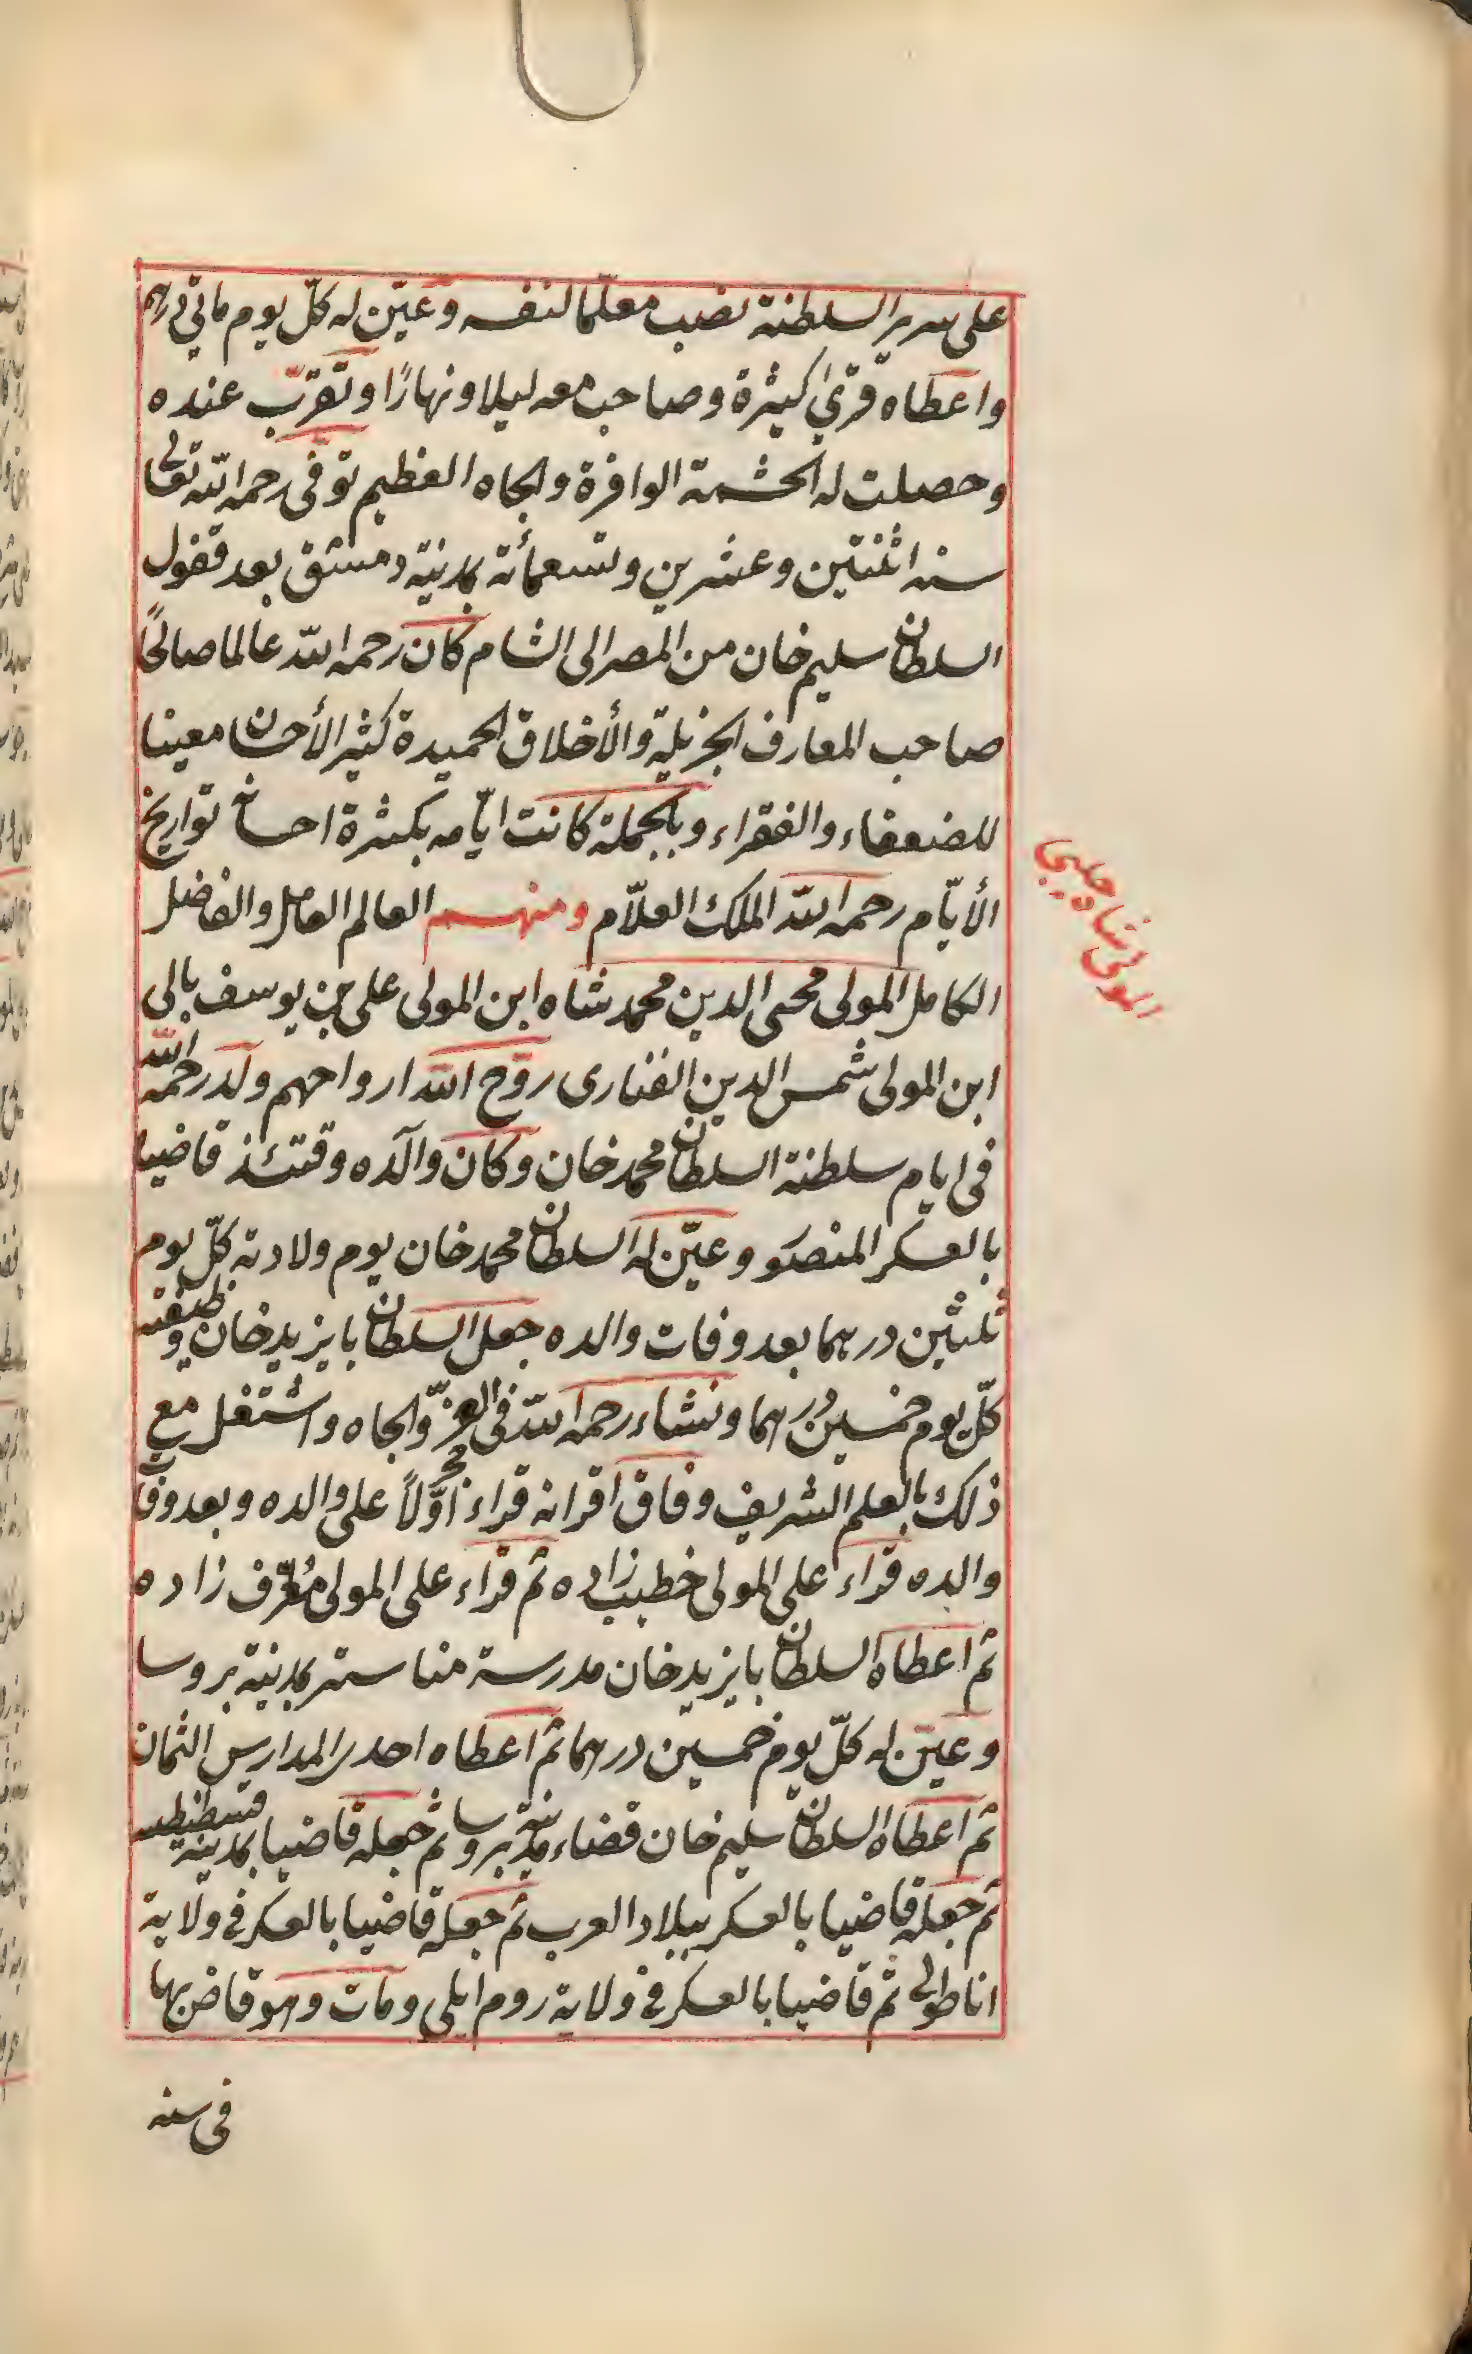 على سرير السلطنة نصب معلّما لنفسه وعيّن له كلّ يوم مائتي درهم
واعطاه قرىً كثيرة وصاحب معه ليلا ونهارًا وتقرّب عنده
وحصلت له الحشمة الوافرة والجاه العظيم توفى رحمه الله تعالى
سنه اثنتين وعشرين وتسعمائة بمدينة دمشق بعد قفول
السلطان سليم خان من المصر الى الشام كان رحمه الله عالما صالحًا
صاحب المعارف الجزيلة والأخلاق الحميدة كثير الأحسان معينا
للضعفاء والفقراء وبالجملة كانت ايّامه بكثرة احسانه تواريخ
الأيّام رحمه الله الملك العلاّم ومنهم العالم العامل والفاضل
المولى شاه چلبى
الكامل المولى محيى الدين محمد شاه ابن المولى على بن يوسف بالى
ابن المولى شمس الدين الفنارى روّح الله ارواحهم ولد رحمه الله
فى ايام سلطنة السلطان محمد خان وكان والده وقتئذ قاضيا
بالعسكر المنصور وعيّن له السلطان محمد خان يوم ولادته كلّ يوم
ثلثين درهما بعد وفات والده جعل السلطان بايزيد خان وظيفته
كلّ يوم خمسين درهما ونشاء رحمه الله فى العزّ والجاه واشتغل مع
ذلك بالعلم الشريف وفاق اقرانه قراء اوّلاً على والده وبعد وفات
والده قراء على المولى خطيب زاده ثم قراء على المولى معرّف زاده
ثم اعطاه السلطان بايزيد خان مدرسة مناستر بمدينة بروسا
وعيّن له كلّ يوم خمسين درهما ثم اعطاه احدى المدارس الثمان
ثم اعطاه السلطان سليم خان قضاء مدينة بروسا ثم جعله قاضيا بمدينة قسطنطينيه
ثم جعله قاضيا بالعسكر ببلاد العرب ثم جعله قاضيا بالعسكر فى ولاية
اناطولى ثم قاضيا بالعسكر فى ولاية روم ايلى ومات وهو قاض بها
فى سنه